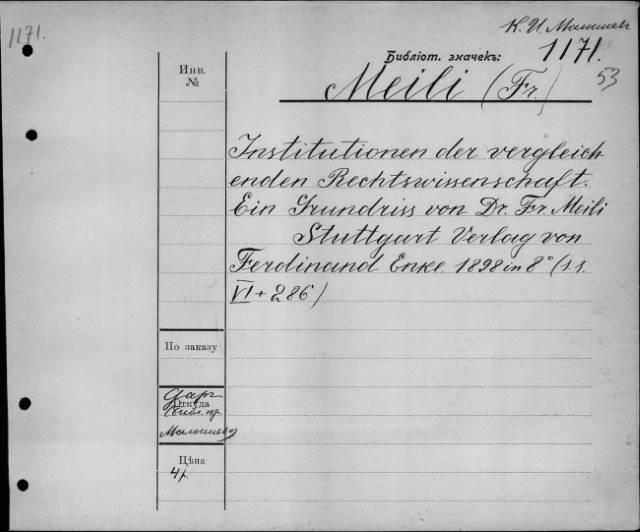 1171.
К. И. Малышев
Библіот. значекъ: 1171.
53
Инв.
№
Meili (Fr.)
Institutionen der vergleich
enden Rechtswissenschaft.
Ein Grundriss von Dr. Fr. Meili
Stuttgart Verlag von
Ferdinand Enke 1898 in 8° (s.s.
VI + 286)
По заказу
Даръ
Откуда
Библ. пр.
Малышева
Цѣна
4р.